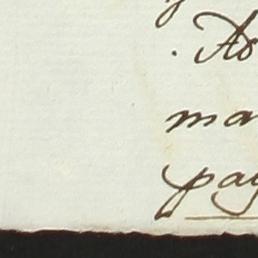 . As
ma
pay